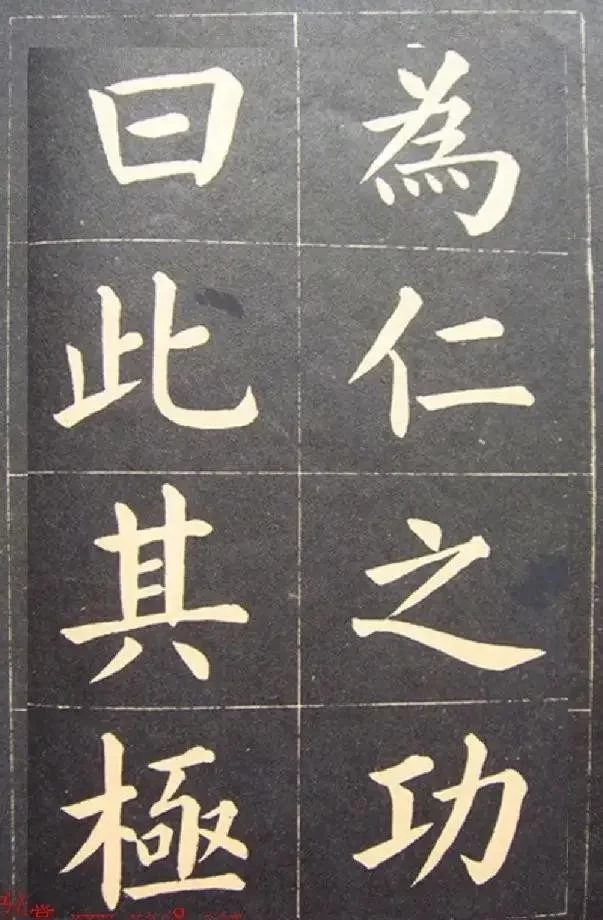 為仁之功
曰此其極